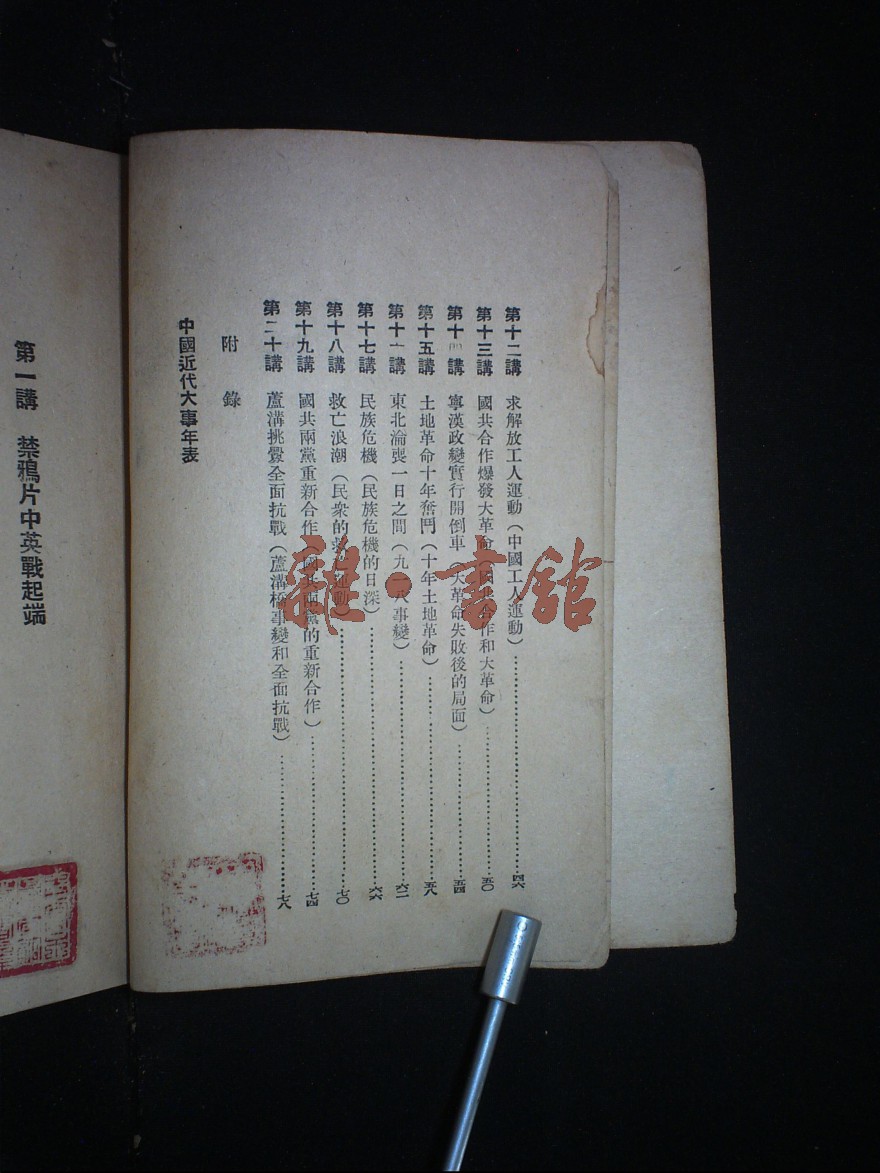 第十二講 求解放工人運動（中國工人運動）……四六
第十三講 國共合作爆發大革命（國共合作和大革命）……五〇
第十四講 寧漢政變實行開倒車（大革命失敗後的局面）……五四
第十五講 土地革命十年奮鬥（十年土地革命）……五八
第十 講 東北淪喪一日之間（九一八事變）……六二
第十七講 民族危機（民族危機的日深）……六六
第十八講 救亡浪潮（民衆的救亡運動）……七〇
第十九講 國共兩黨重新合作（國共兩黨的重新合作）……七四
第二十講 蘆溝挑釁全面抗戰（蘆溝橋事變和全面抗戰）……七八
附 錄
中國近代大事年表
第一講 禁鴉片中英戰起端
雜·書館